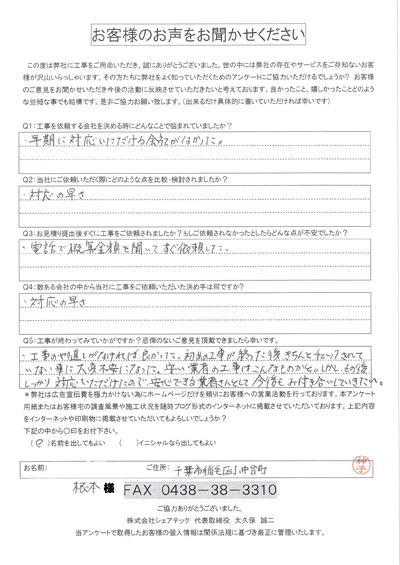 お客様のお声をお聞かせください
この度は弊社に工事をご用命いただき、誠にありがとうございました。世の中には弊社の存在やサービスをご存知ないお客
様が沢山いらっしゃいます。その方たちに弊社をよく知っていただくためのアンケートにご協力いただけるでしょうか? お客様
のご意見をお聞かせいただき今後の活動に反映させていただきたいと考えております。良かったこと、嬉しかったことどのよう
な些細な事でも結構です。是非ご協力お願い致します。(出来るだけ具体的に書いていただければ幸いです)
Q1:工事を依頼する会社を決める時にどんなことで悩まれていましたか?
・早期に対応いただける会社がなかった。
Q2:当社にご依頼いただく際にどのような点を比較・検討されましたか?
・対応の早さ
Q3:お見積り提出後すぐに工事をご依頼されましたか?もしご依頼されなかったとしたらどんな点が不安でしたか?
・電話で概算金額を聞いてすぐ依頼した。
Q4:数ある会社の中から当社に工事をご依頼いただいた決め手は何ですか?
・対応の早さ
Q5:工事が終わってみていかがですか?忌憚のないご意見を頂戴できましたら幸いです。
・工事のやり直しがなければ良かった。初回の工事が終った後きちんとチェックされて
いない事に大変不安になった。安い業者の工事はこんなものかと。しかし、その後
しっかり対応いただけたので安心できる業者さんとして今後もお付き合いしていきたい。
*弊社は広告宣伝費を極力かけない為にホームページだけを頼りにお客様への営業活動を行っております。本アンケート
用紙またはお客様宅の調査風景や施工状況を随時ブログ形式のインターネットに掲載させていただいております。上記内容
をインターネットや印刷物に掲載させていただいてもよろしいでしょうか?
下記の中から〇印をお付下さい。
(○)名前を出してもよい ( )イニシャルなら出してもよい
お名前: ご住所: 千葉市稲毛区小中台町
根本 様 FAX 0438-38-3310
ご協力ありがとうございました。
株式会社シェアテック 代表取締役 大久保 誠二
当アンケートで取得したお客様の個人情報は関係法規に基づき厳正に管理いたします。